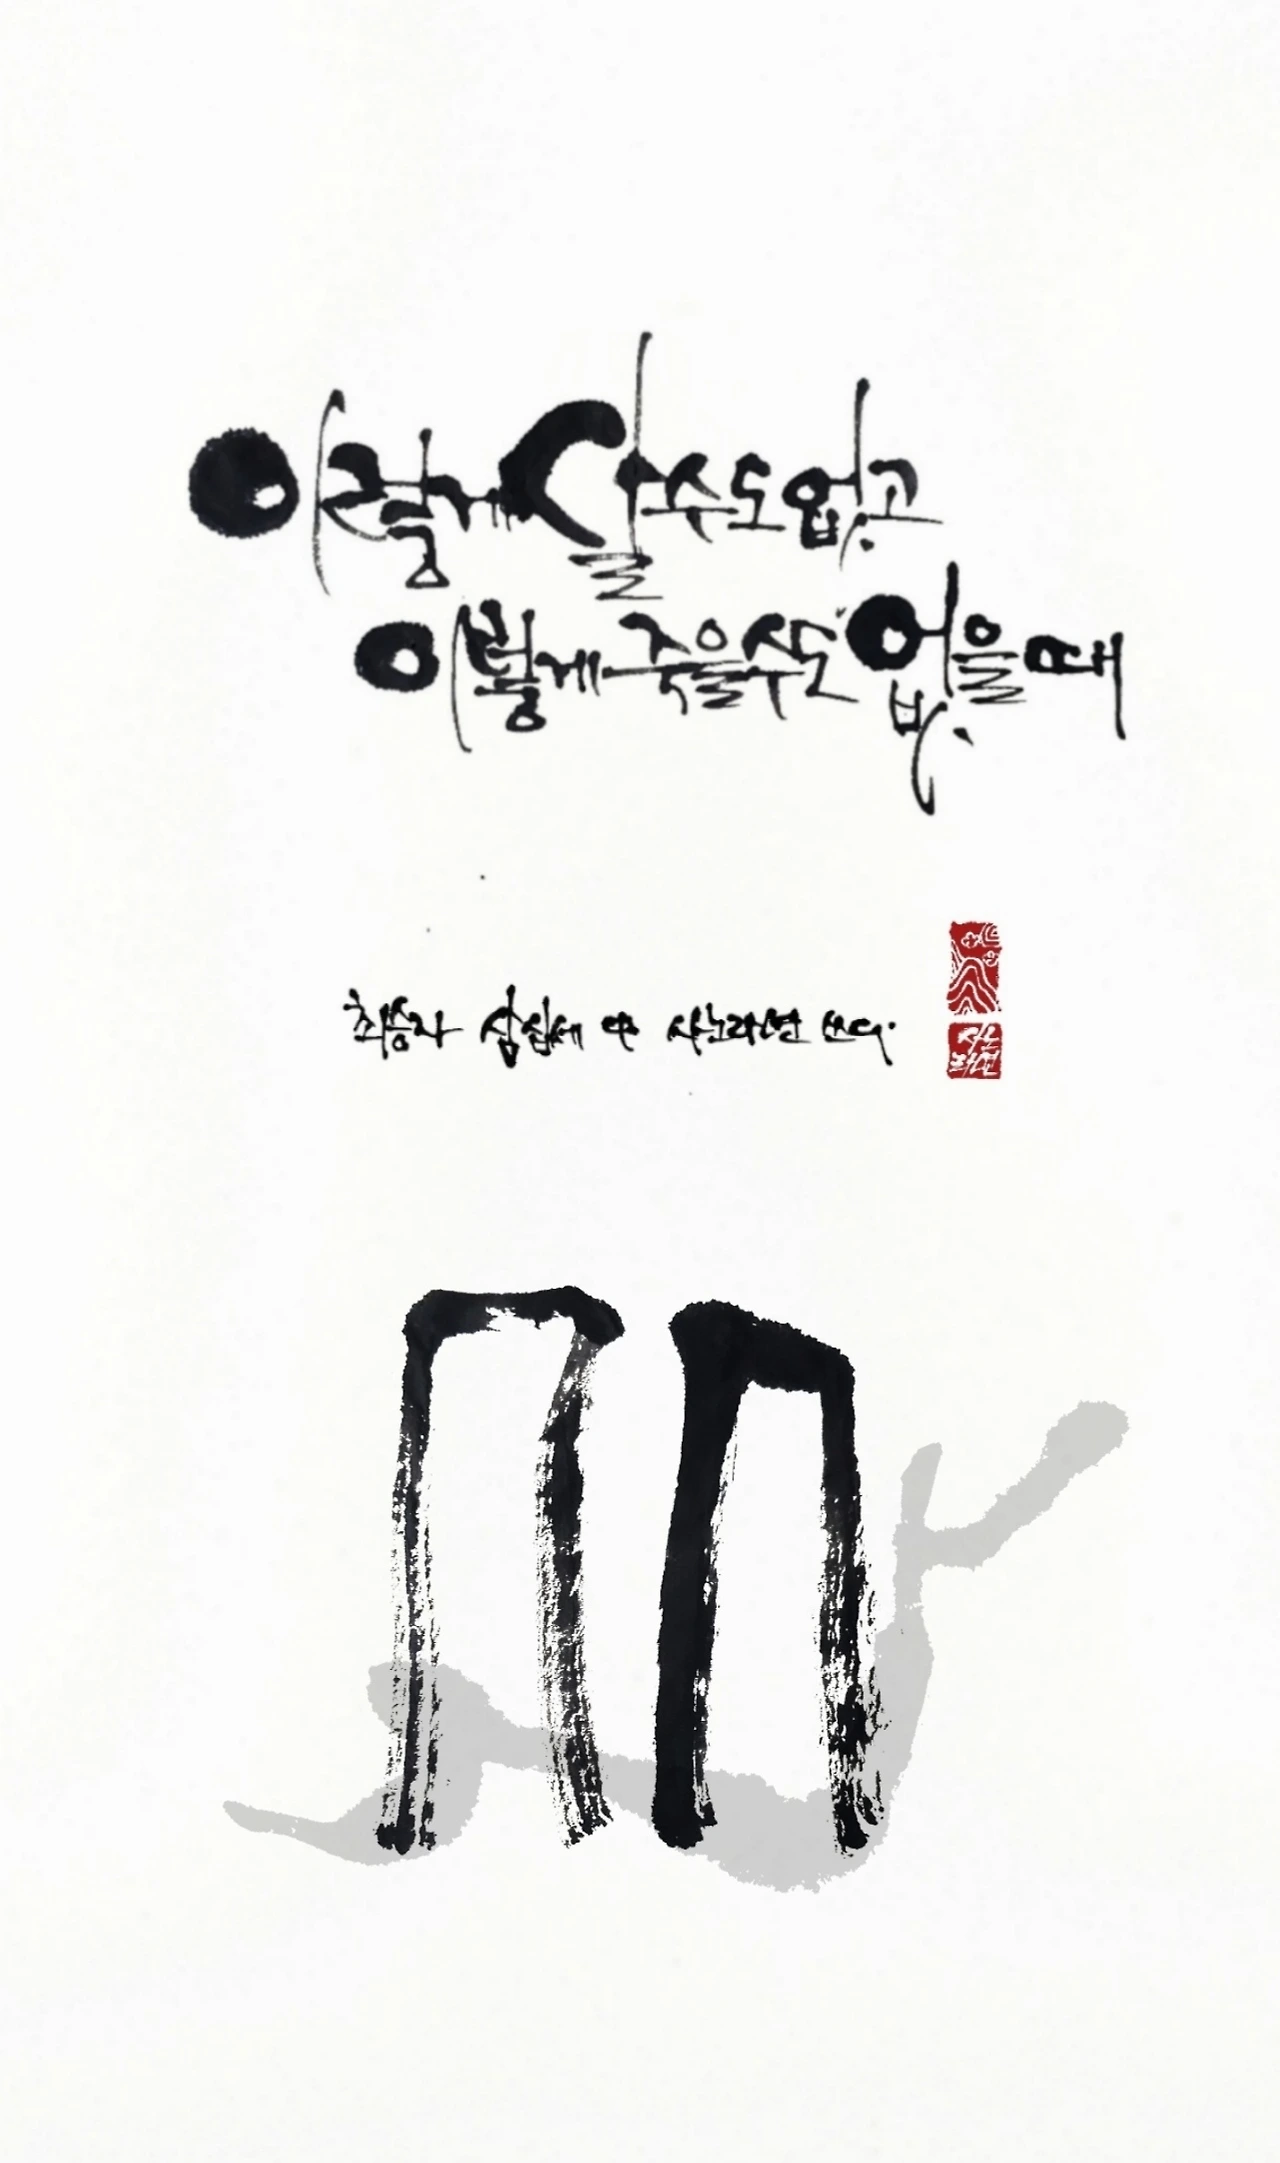 이렇게 살 수도 없고
이렇게 죽을 수도 없을 때
최승자 삼십세 中 사노라면 쓰다.